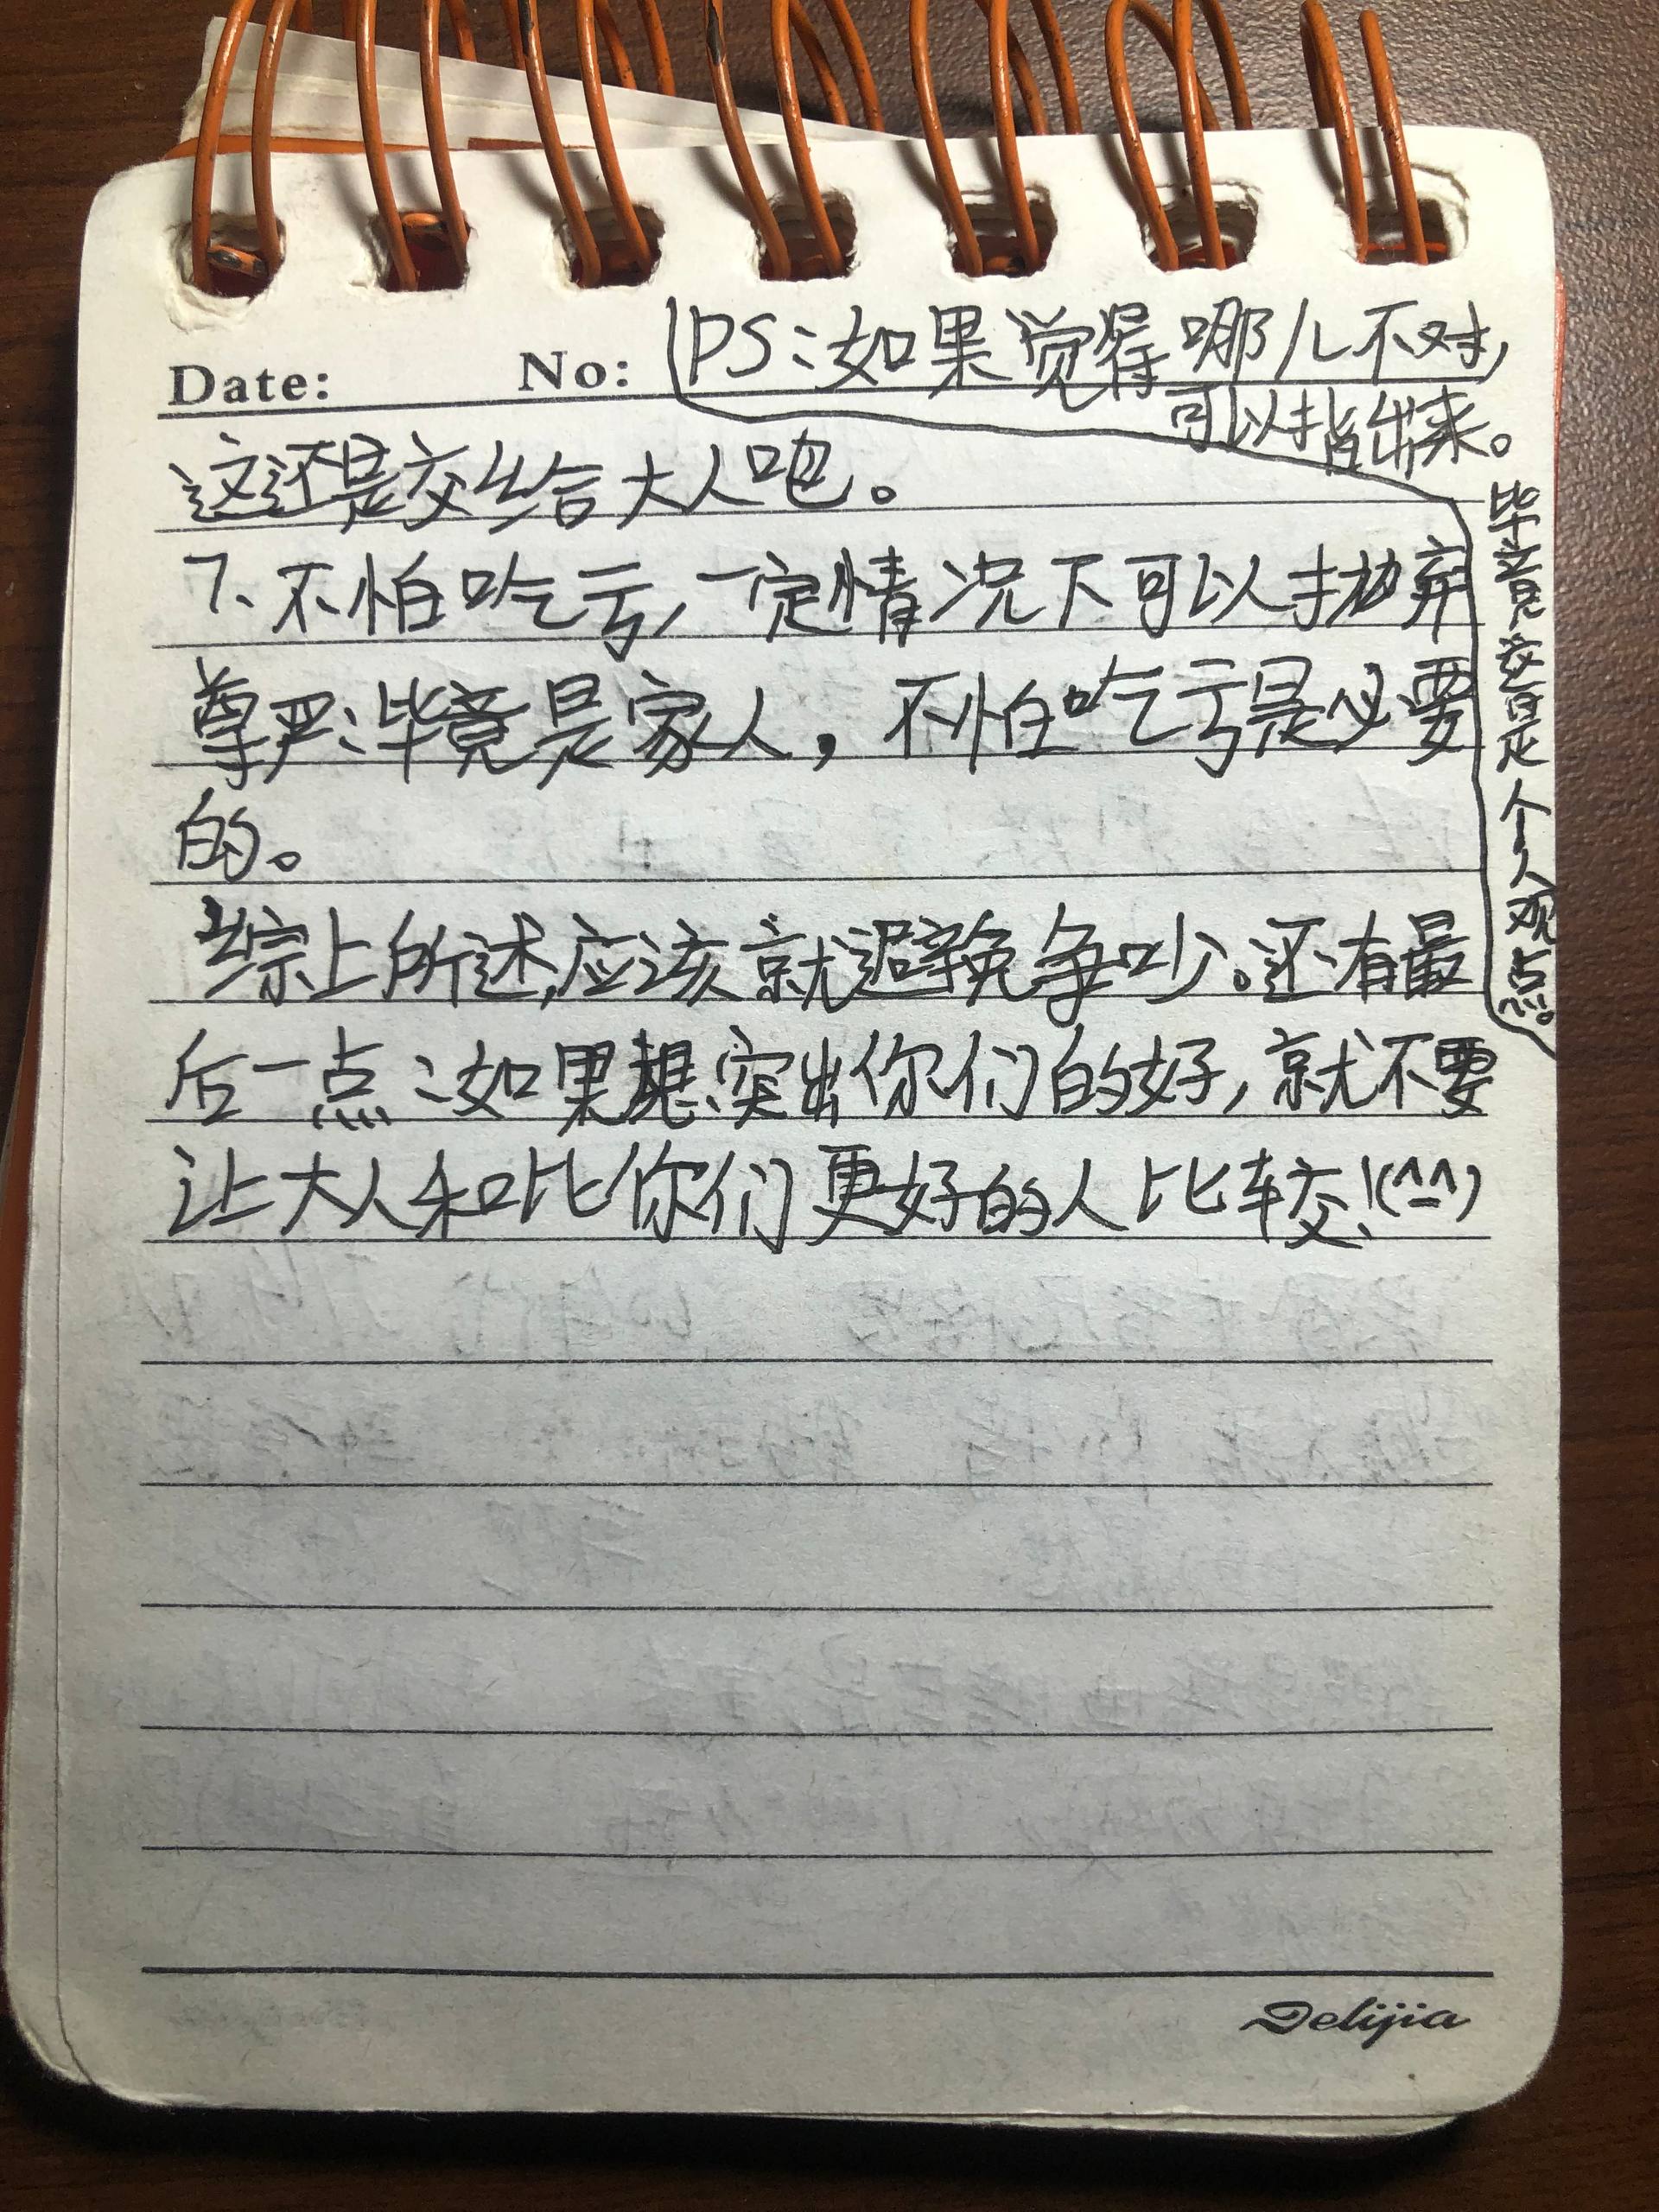 Date: No:
PS:如果觉得哪儿不对,
可以指出来。
毕竟这是个人观点。
这还是交给大人吧。
7、不怕吃亏,一定情况下可以抛弃
尊严:毕竟是家人,不怕吃亏是必要
的。
综上所述,应该就避免争吵。还有最
后一点:如果想突出你们的好,就不要
让大人和比你们更好的人比较!(^_^)
Delijia